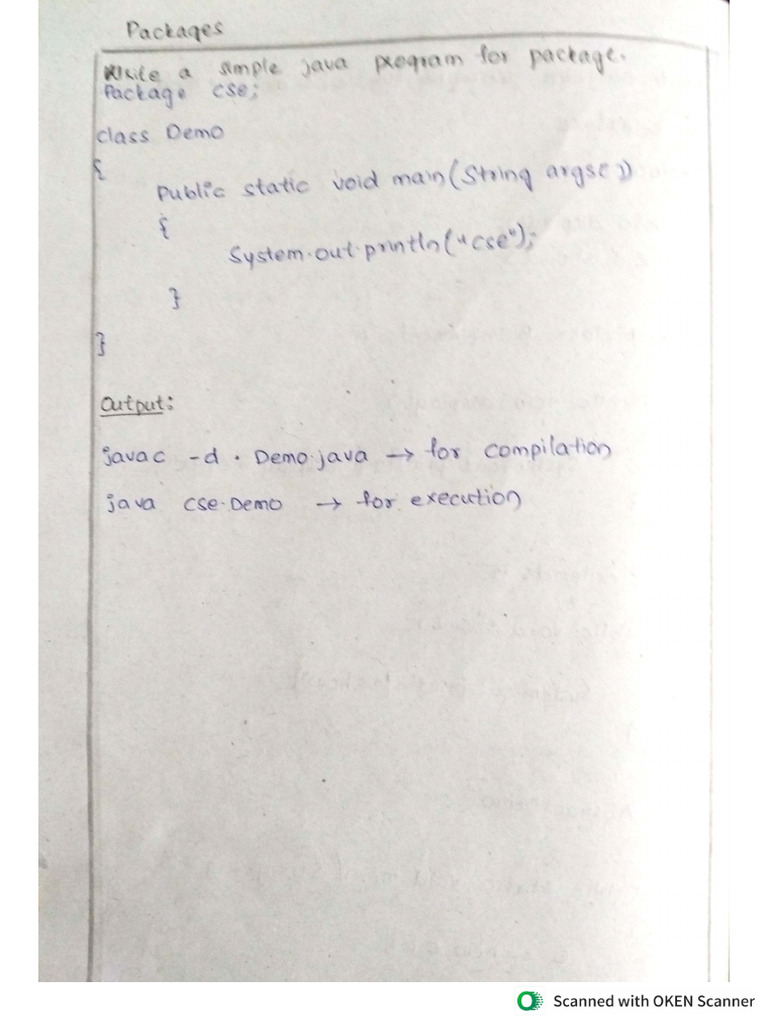 Packages
Write a simple java program for package.
Package cse;
class Demo
{
Public static void main(String args[])
{
System.out.println("cse");
}
}
Output:
javac -d . Demo.java → for compilation
java cse.Demo → for execution
Scanned with OKEN Scanner